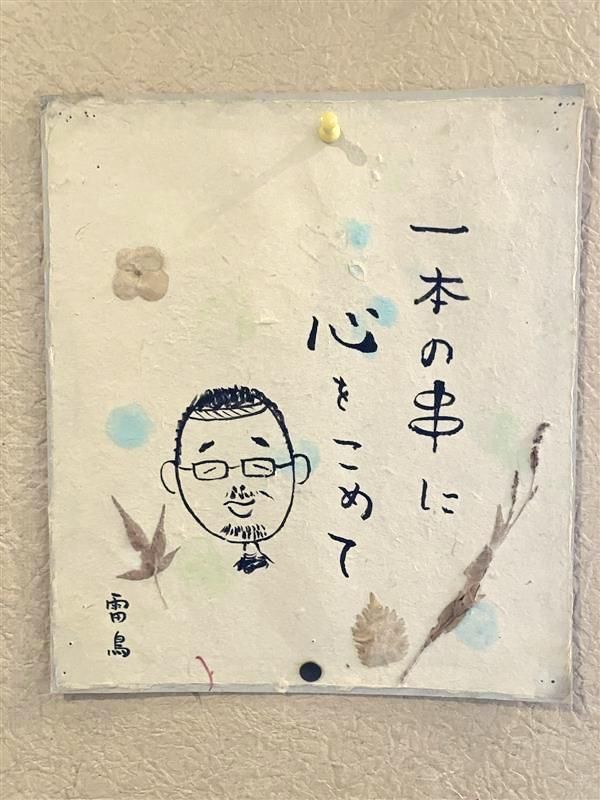 一本の串に
心をこめて
雷鳥